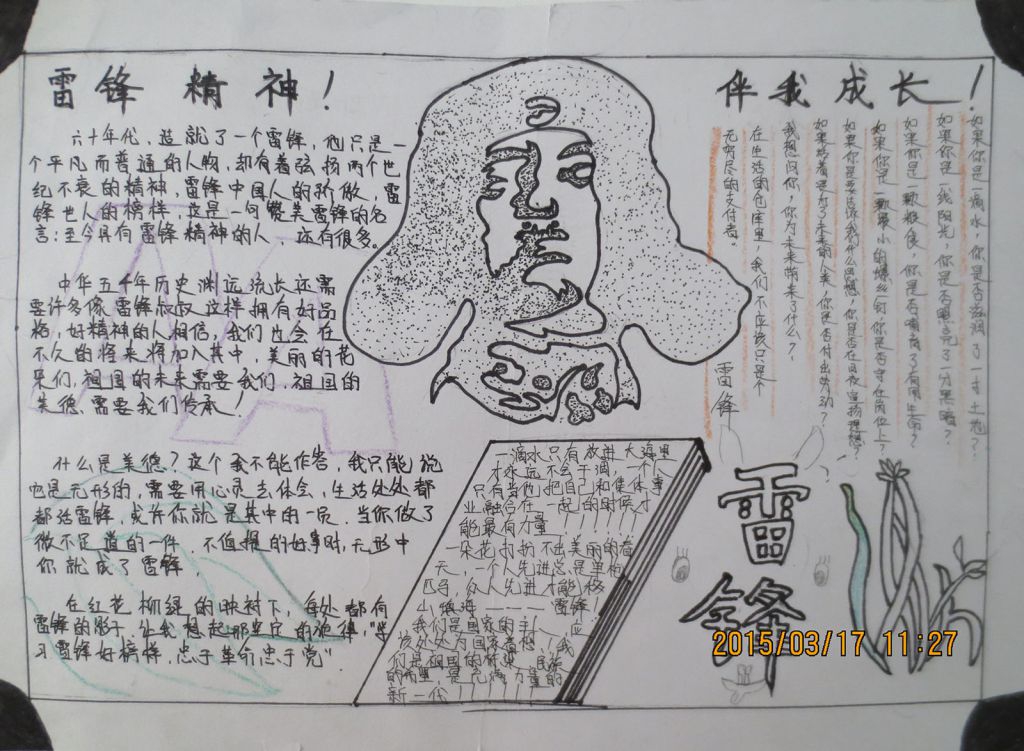 雷锋精神！
六十年代，造就了一个雷锋，他只是一
个平凡而普通的人物，却有着弘扬两个世
纪不衰的精神，雷锋中国人的骄傲，雷
锋世人的榜样，这是一句赞美雷锋的名
言：至今具有雷锋精神的人 还有很多。
中华五千年历史渊远流长还需
要许多像雷锋叔叔这样拥有好品
格，好精神的人相信，我们也会在
不久的将来将加入其中，美丽的花
朵们，祖国的未来需要我们，祖国的
美德，需要我们传承！
什么是美德？这个我不能作答，我只能说
它是无形的，需要用心灵去体会，生活处处都
都活雷锋，或许你就是其中的一员，当你做了
微不足道的一件 不值提的好事时，无形中
你就成了雷锋，
在红花柳绿的映衬下，每处都有
雷锋的影子，让我想起那坚定的旋律，"学
习雷锋好榜样，忠于革命忠于党"．
一滴水只有放进大海里
才永远不会干涸，一个人
只有当他把自己和集体事
业融合在一起的的时候才
能最有力量
一朵花打扮不出美丽的春
天，一个人先进总是单枪
匹马，众人先进才能移
山填海————雷锋！
我们是国家的主人，应
该处处为国家着想，我
们是祖国的
新一代！
伴我成长！
如果你是一滴水，你是否滋润了一寸土地？
如果你是一线阳光，你是否照亮了一分黑暗？
如果你是一颗粮食，你是否哺育了有用生命？
如果你是一颗最小的螺丝钉你是否守在岗位上？
如果你是要告诉我什么思想 你是否在日夜宣扬理想？
如果你 着 为了未来的人来 你是否付出劳动？
我想问你，你为未来带来了什么？
在生活的仓库里，我们不应该只是个
无穷尽的支付者。
雷锋
雷
锋
2015/03/17 11:27